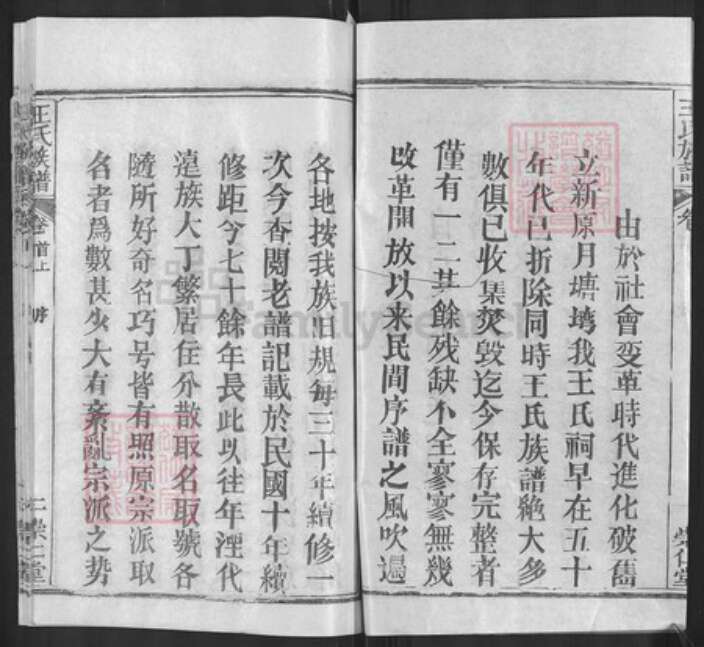 由於社會变革時代進化破舊
立新原月塘塆我王氏祠早在五十
年代已折除同時王氏族譜絶大多
數俱已收集焚毀迄今保存完整者
僅有一二其餘残缺不全寥寥無幾
改革開放以来民間序譜之風吹遍
各地按我族旧規每三十年續修一
次今杳閱老譜記載於民國十年續
修距今七十餘年長此以往年湮代
遠族大丁繁居住分散取名取號各
隨所好奇名巧号皆有照原宗派取
名者爲數甚少大有紊亂宗派之势
王氏族譜
卷首上
序
崇仁堂
王氏族譜
卷
崇仁堂
familysearch